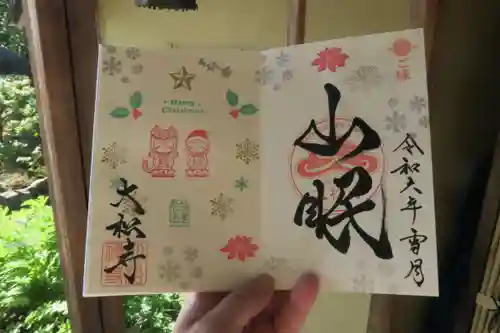 ご縁
令和六年 雪月
山眠
Merry
Christmas
大松寺